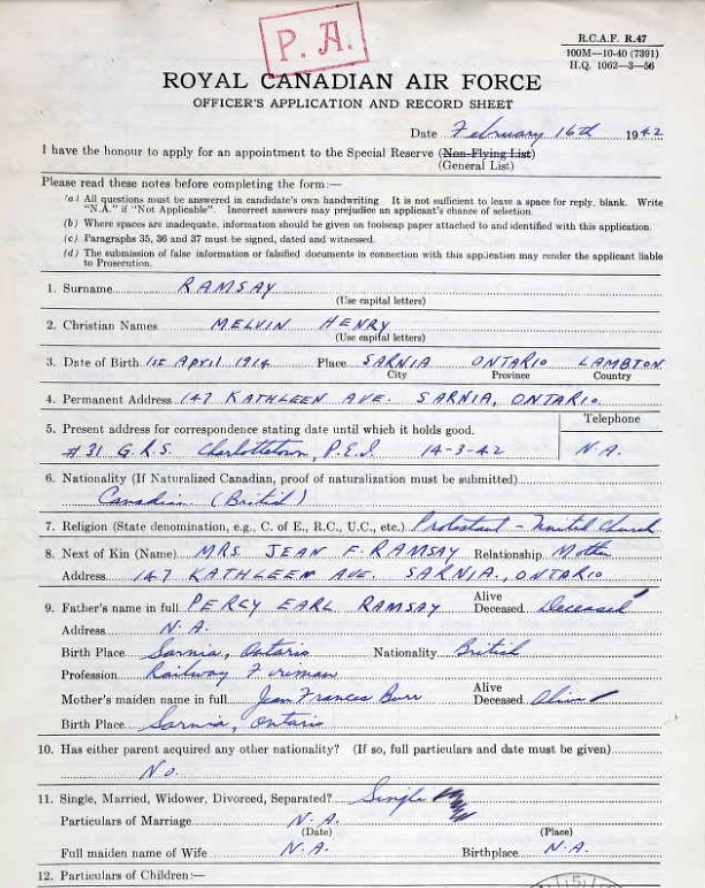 P. A.
R.C.A.F. R.47
100M—10-40 (7391)
H.Q. 1062—3—56
ROYAL CANADIAN AIR FORCE
OFFICER'S APPLICATION AND RECORD SHEET
Date February 16th 1942
I have the honour to apply for an appointment to the Special Reserve (Non-Flying List)
(General List)
Please read these notes before completing the form:—
(a) All questions must be answered in candidate's own handwriting. It is not sufficient to leave a space for reply, blank. Write
"N.A." if "Not Applicable". Incorrect answers may prejudice an applicant's chance of selection.
(b) Where spaces are inadequate, information should be given on foolscap paper attached to and identified with this application.
(c) Paragraphs 35, 36 and 37 must be signed, dated and witnessed.
(d) The submission of false information or falsified documents in connection with this application may render the applicant liable
to Prosecution.
1. Surname RAMSAY
(Use capital letters)
2. Christian Names MELVIN HENRY
(Use capital letters)
3. Date of Birth 1st April 1914 Place SARNIA ONTARIO LAMBTON
City Province Country
4. Permanent Address 147 KATHLEEN AVE. SARNIA, ONTARIO.
5. Present address for correspondence stating date until which it holds good. Telephone
#31 G.R.S. Charlottetown, P.E.I. 14-3-42 N.A.
6. Nationality (If Naturalized Canadian, proof of naturalization must be submitted)
Canadian (British)
7. Religion (State denomination, e.g., C. of E., R.C., U.C., etc.) Protestant - United Church
8. Next of Kin (Name) MRS. JEAN F. RAMSAY Relationship Mother
Address 147 KATHLEEN AVE. SARNIA., ONTARIO
9. Father's name in full PERCY EARL RAMSAY Alive Deceased Deceased
Address N.A.
Birth Place Sarnia, Ontario Nationality British
Profession Railway Fireman
Mother's maiden name in full Jean Frances Burr Alive Deceased Alive
Birth Place Sarnia, Ontario
10. Has either parent acquired any other nationality? (If so, full particulars and date must be given)
No.
11. Single, Married, Widower, Divorced, Separated? Single
Particulars of Marriage N.A.
(Date) (Place)
Full maiden name of Wife N.A. Birthplace N.A.
12. Particulars of Children:—